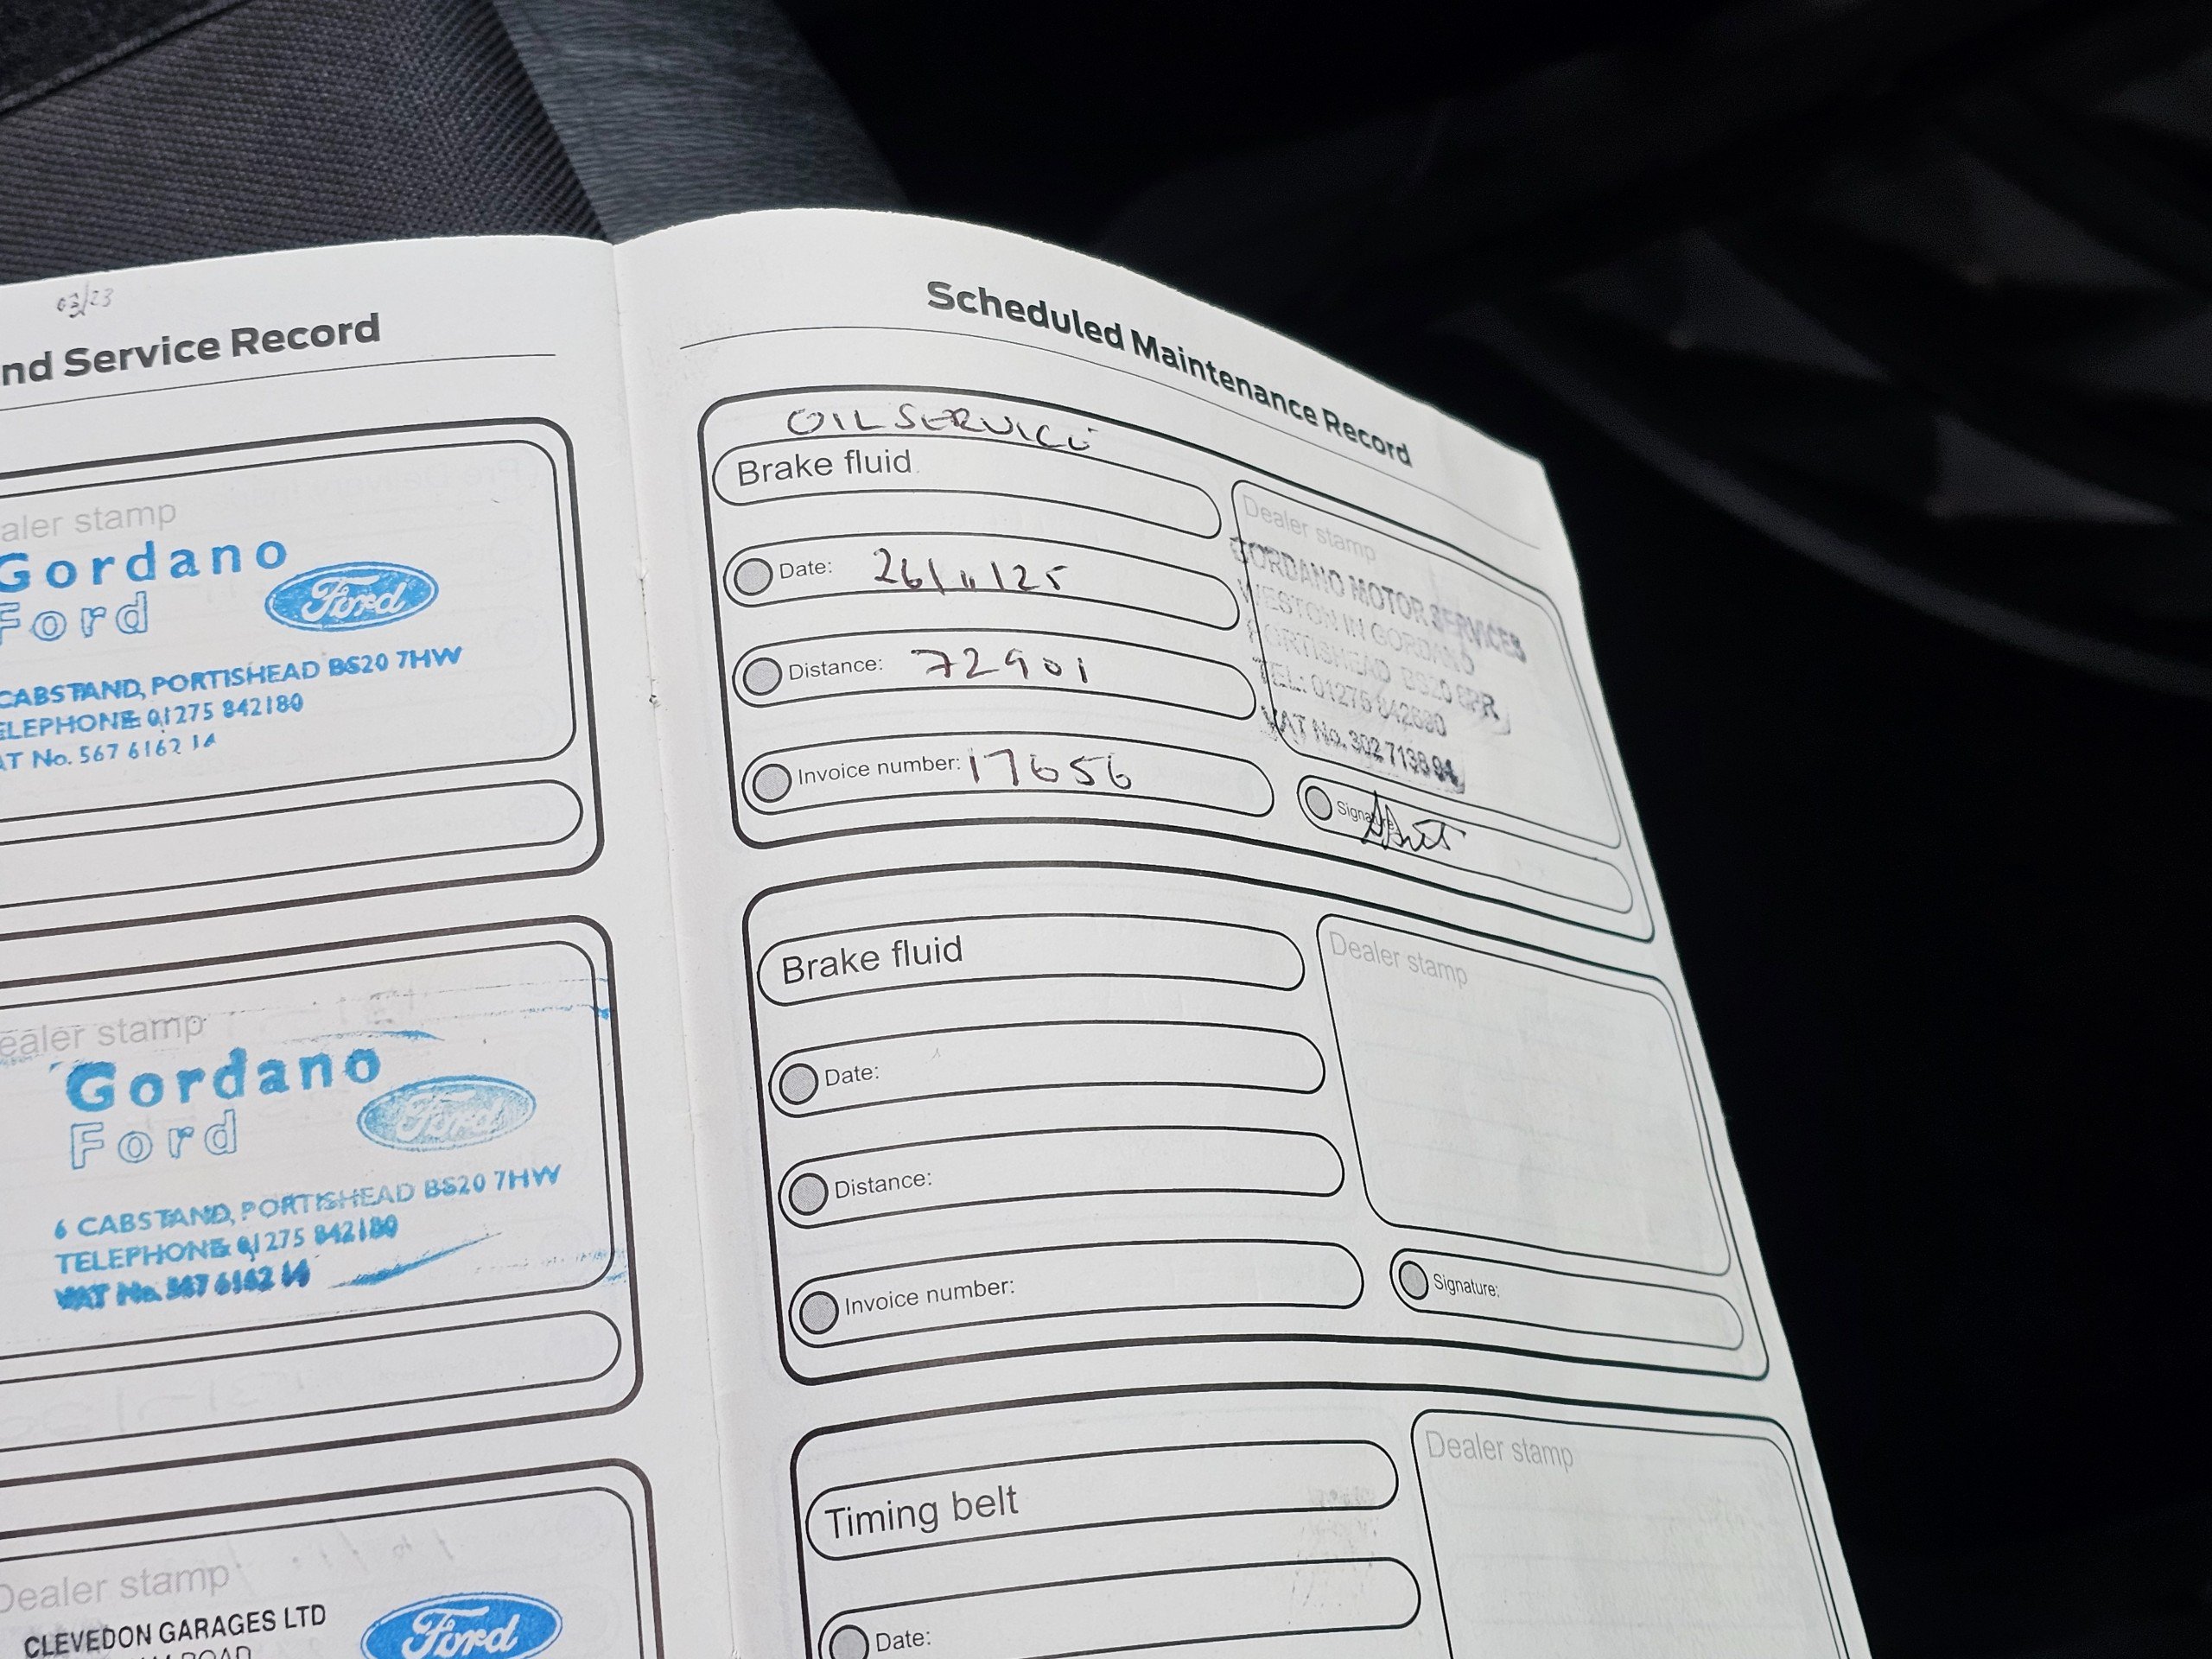 03/23
nd Service Record
aler stamp
Gordano
Ford
Ford
CABSTAND, PORTISHEAD BS20 7HW
ELEPHONE 01275 842180
AT No. 567 6162 14
ealer stamp
Gordano
Ford
Ford
6 CABSTAND, PORTISHEAD BS20 7HW
TELEPHONE 01275 842180
VAT No. 567 6162 14
Dealer stamp
CLEVEDON GARAGES LTD
ROAD
Ford
Scheduled Maintenance Record
OIL SERVICE
Brake fluid
Dealer stamp
GORDANO MOTOR SERVICES
WESTON IN GORDANO
PORTISHEAD BS20
TEL: 01275
VAT No. 302 7138 94
Date: 26/11/25
Distance: 72901
Invoice number: 17656
Signature:
Brake fluid
Dealer stamp
Date:
Distance:
Invoice number:
Signature:
Timing belt
Dealer stamp
Date: